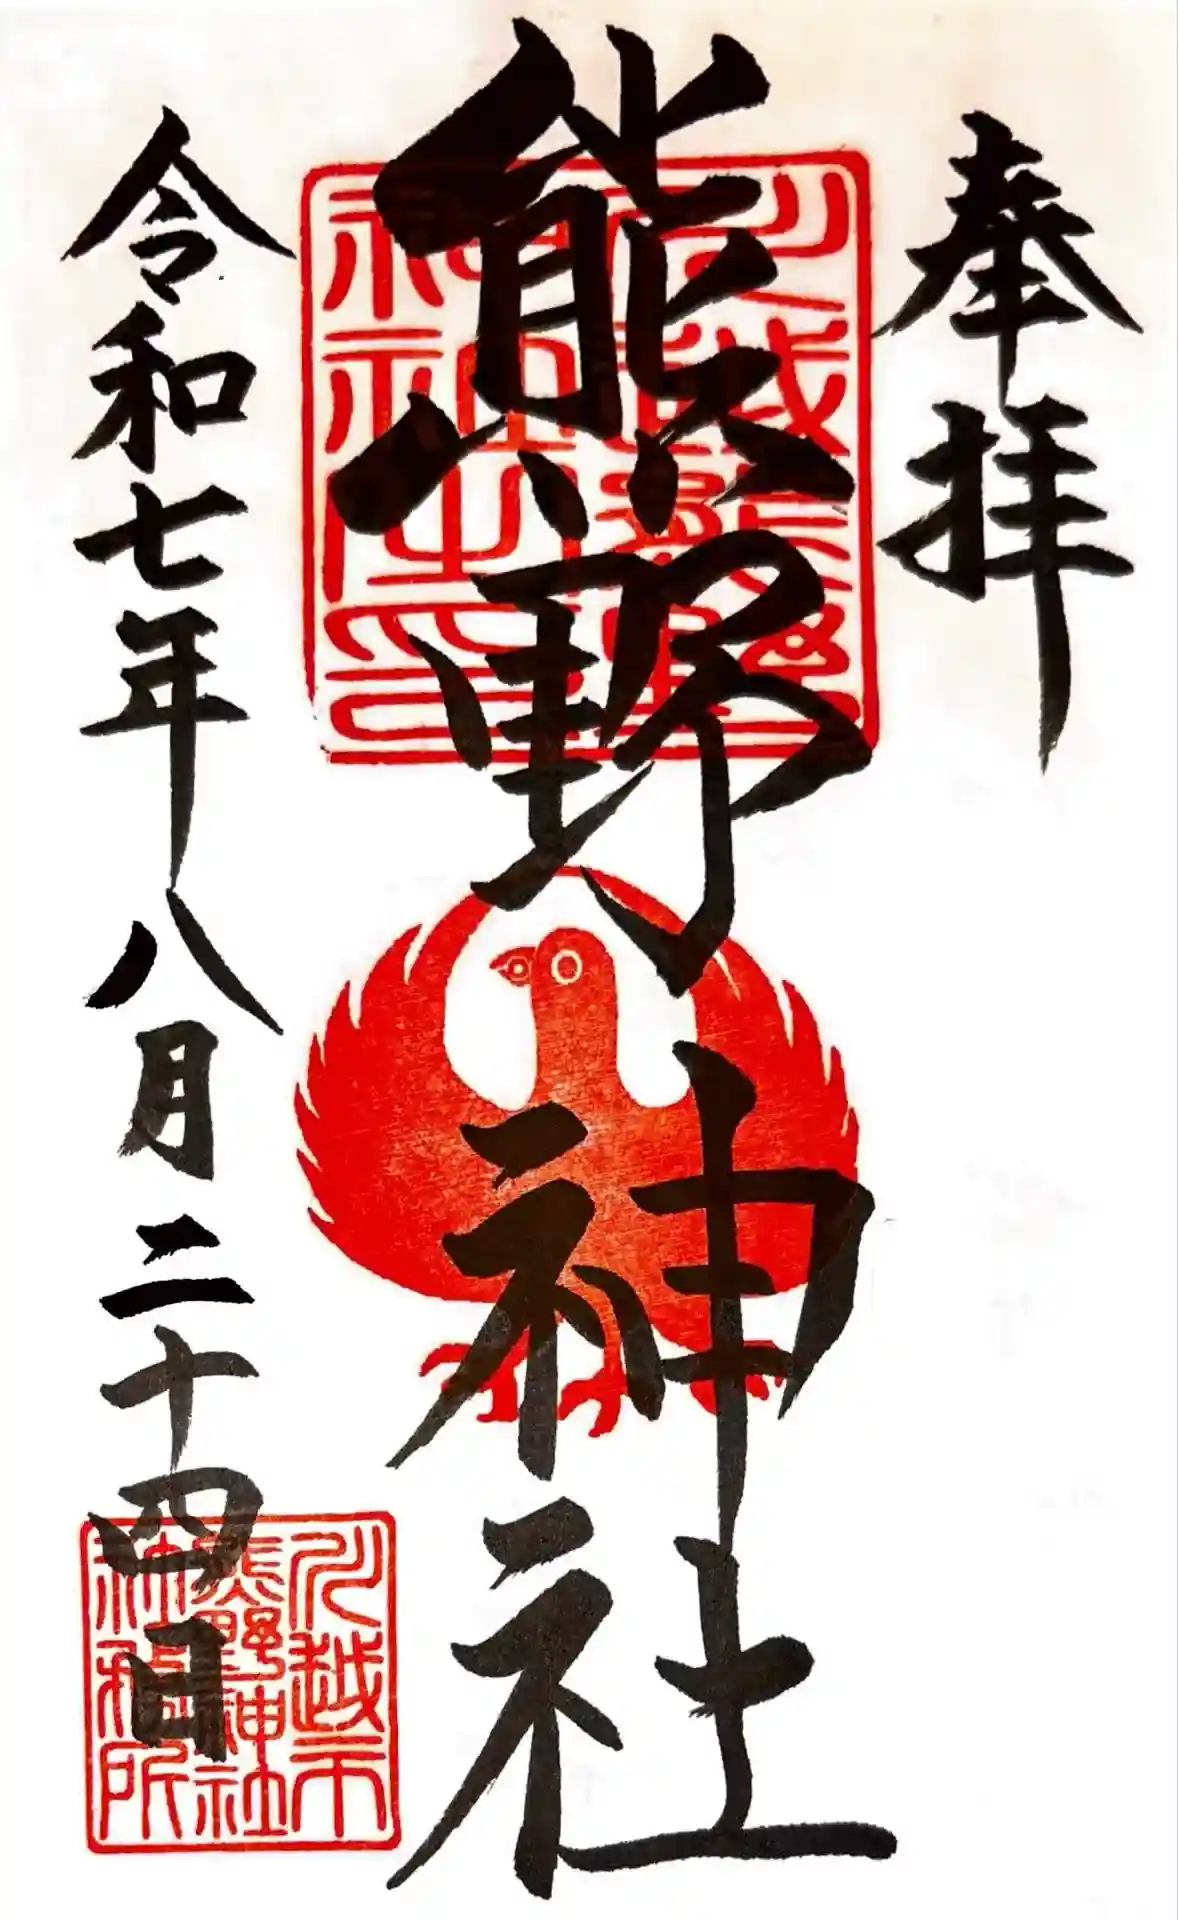 奉拝
熊野神社
令和七年八月二十四日
川越市
熊野神社
社務所